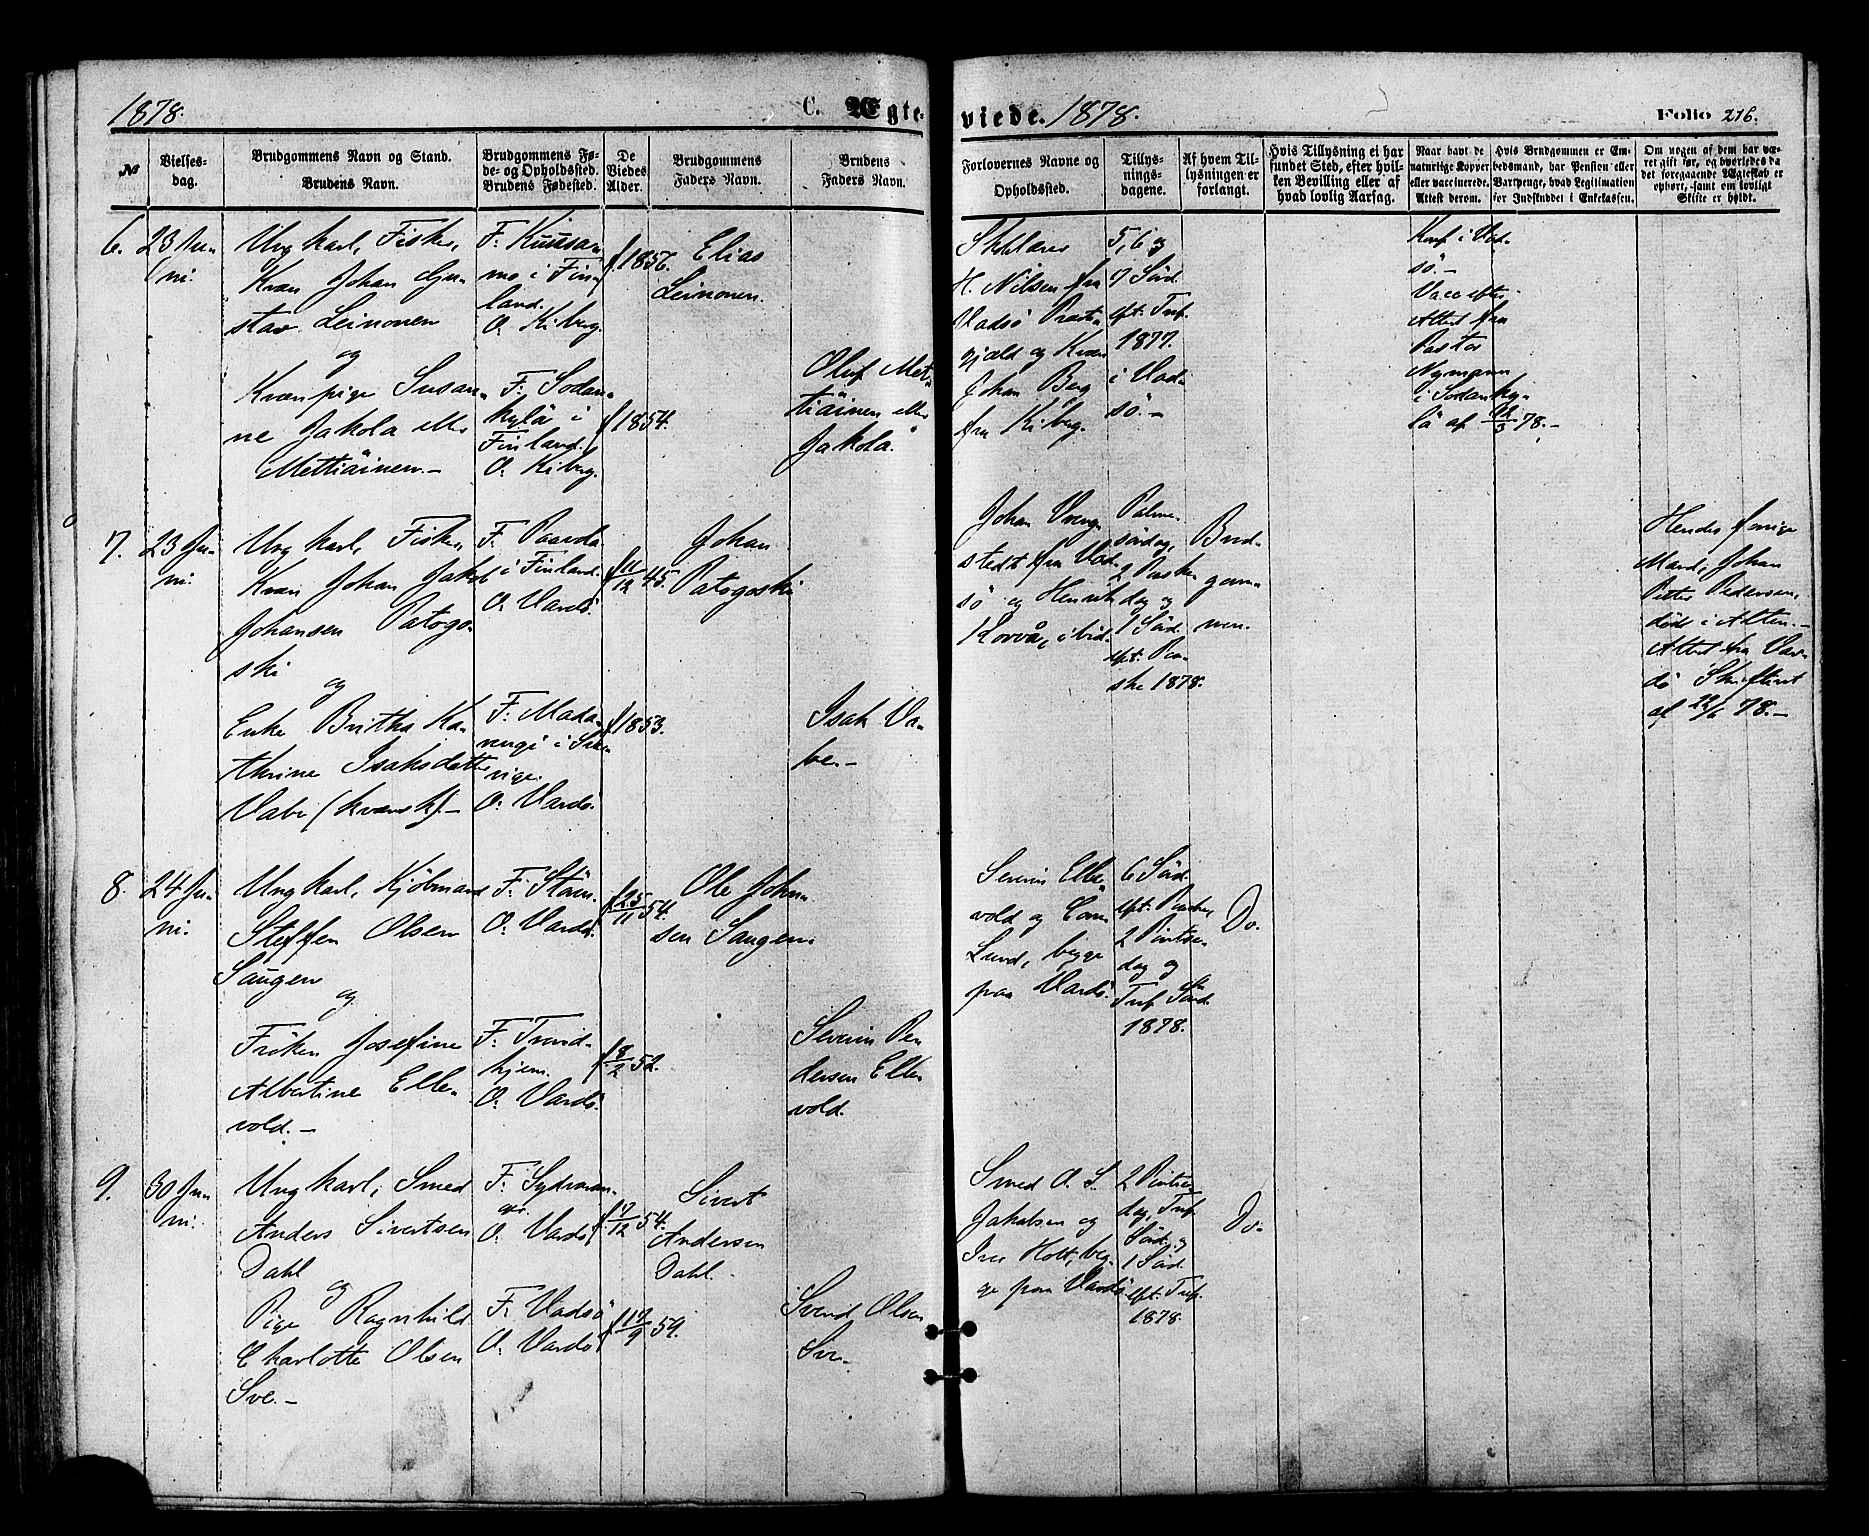 1878.
C. Ægte-
viede. 1878.
Folio 216.
№
Vielses-
dag.
Brudgommens Navn og Stand.
Brudens Navn.
Brudgommens Fø-
de- og Opholdssted.
Brudens Fødested.
De
Viedes
Alder.
Brudgommens
Faders Navn.
Brudens
Faders Navn.
Forlovernes Navne og
Opholdssted.
Tillys-
nings-
dagene.
Af hvem Til-
lysningen er
forlangt.
Hvis Tillysning ei har
fundet Sted, efter hvil-
ken Bevilling eller af
hvad lovlig Aarsag.
Naar havt de
naturlige Kopper
eller vaccinerede.
Attest derom.
Hvis Brudgommen er Em-
bedsmand, har Pension eller
Vartpenge, hvad Legitimation
for Indskuddet i Enkekassen.
Om nogen af dem har væ-
ret gift før, og hvorledes da
det foregaaende Ægteskab er
ophørt, samt om lovligt
Skifte er holdt.
6.
23 Ju-
ni.
Ungkarl, Fisker,
Kvæn Johan Gu-
stav Leinonen
og
Kvænpige Susan-
ne Jakola eller
Mettiäinen.-
F. Kuusa-
mo i Fin-
land.
O. Kiberg.
F. Sodan-
kylä i
Finland.
O. Kiberg.
f 1856.
f 1854.
Elias
Leinonen.
Oluf Met-
tiäinen eller
Jakola.
H. Nilsen fra
Vadsö Præste-
gjæld og Kvæn
Johan Berg
fra Kiberg.
5, 6 og
7 Sönd.
eft. Tref.
1877.
i Vad-
sö.-
Konf i Vad-
sö.-
Vacc efter
Attest fra
Pastor
Nymann
i Sodanky-
lä af 78.-
7.
23 Ju-
ni.
Ungkarl, Fisker,
Kvæn Johan Jakob
Johansen Patogo-
ski
og
Enke Britha Ka-
thrine Isaksdatter
Vabe (kvænsk).-
F. Paavola
i Finland.
O. Vardö.
F. Mada-
rengi i Sve-
rige.
O. Vardö.
f 11/12 45.
f 1853.
Johan
Patogoski
Isak Va-
be.-
Johan
stedt fra Vad-
sö og Henrik
ibid.
Palme-
söndag,
2 Paaske
dag og
1 Sönd.
eft. Paa-
ske 1878.
Brud-
gom-
men.
Hendes forrige
Mand, Johan
Petter Pedersen,
döde i Alten.-
Attest fra Var-
dö Skifteret
af 22/6 78.-
8.
24 Ju-
ni.
Ungkarl, Kjöbmand
Steffen Olsen
Saugen
og
Fröken Josefine
Albertine Elle-
vold.-
F. Stören.
O. Vardö.
F. Trond-
hjem.
O. Vardö.
f 25/11 54.
f 8/2 52.
Ole John-
sen Saugen.
Severin Pe-
dersen Elle-
vold.
Severin Elle-
vold og
Lund, begge
paa Vardö.
6 Sönd.
eft. Paaske,
2 Pintse
dag og
Tref. Sön
1878.
Do.
9.
30 Ju-
ni.
Ungkarl, Smed
Anders Sivertsen
Dahl
og
Pige Ragnhild
Charlotte Olsen
Sve.-
F.
O. Vardö
F. Vadsö
O. Vardö
f 7/12 54.
f 17/9 59.
Sivert
Andersen
Dahl.
Svend Olsen
Sve.
Smed O. S.
Jakobsen og
Iver Holt, beg-
ge paa Vardö
2 Pintse
dag, Tref.
Sönd. og
1 Sönd.
eft. Tref.
1878.
Do.